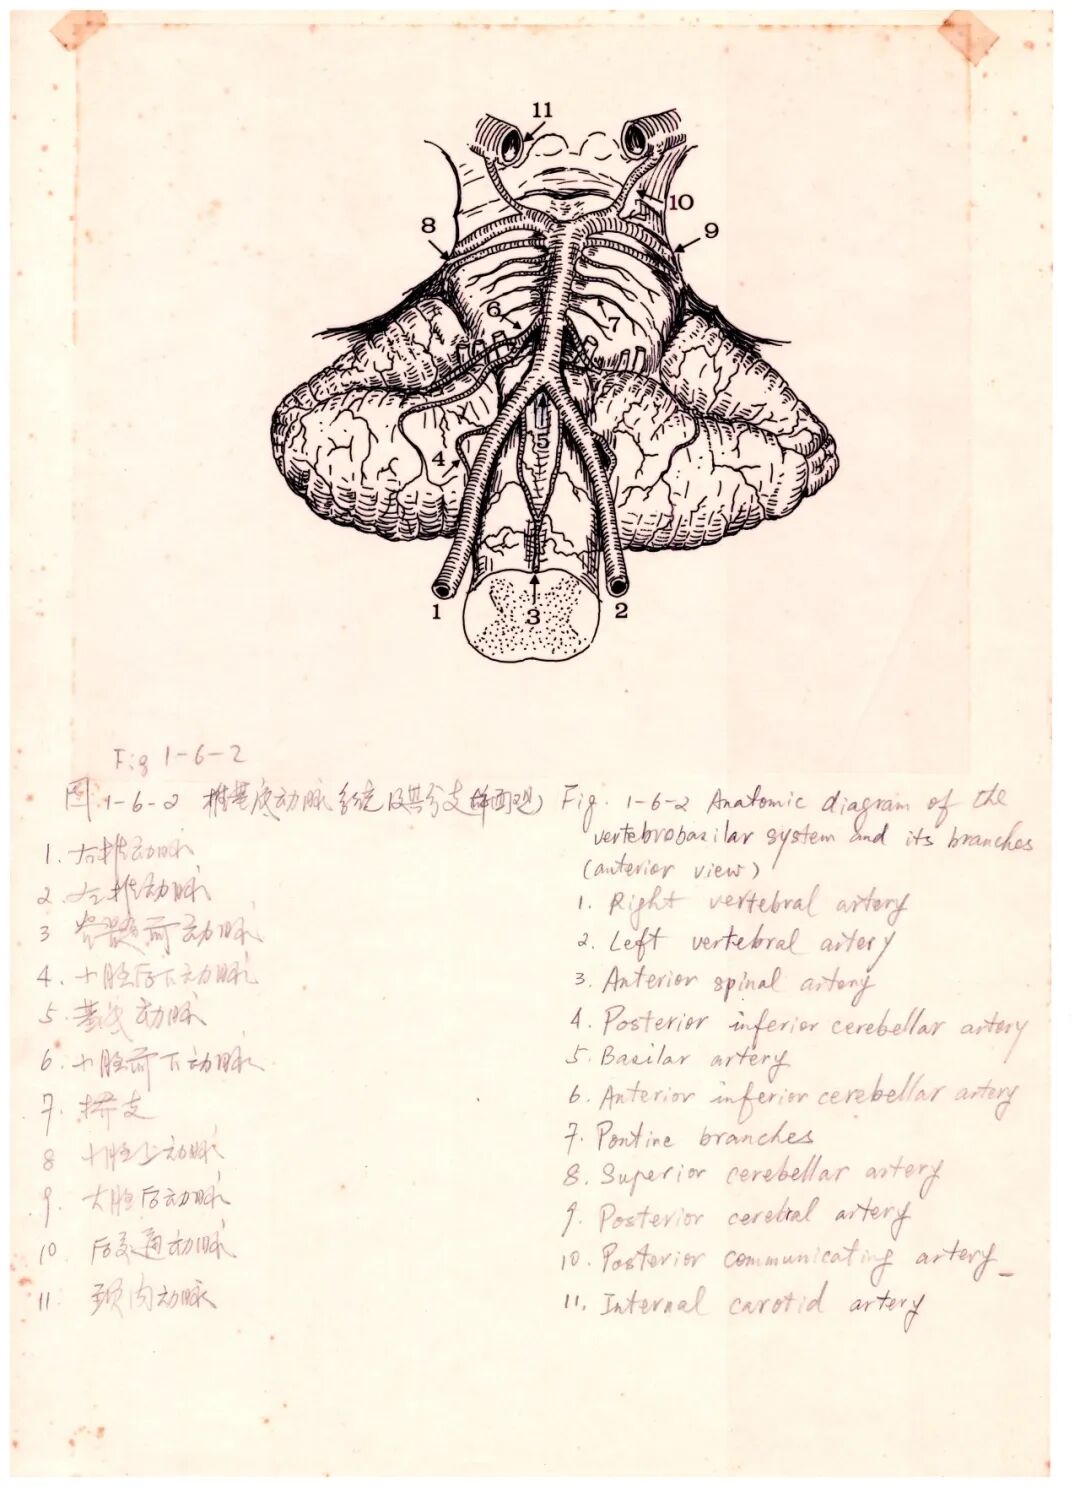 11
10
8
9
6
7
5
4
1
3
2
Fig 1-6-2
图1-6-2 椎基底动脉系统及其分支(前面观)
1. 右椎动脉
2 左椎动脉
3 脊髓前动脉
4. 小脑后下动脉
5. 基底动脉
6. 小脑前下动脉
7. 桥支
8 小脑上动脉
9. 大脑后动脉
10 后交通动脉
11. 颈内动脉
Fig. 1-6-2 Anatomic diagram of the
vertebrobasilar system and its branches
(anterior view)
1. Right vertebral artery
2. Left vertebral artery
3. Anterior spinal artery
4. Posterior inferior cerebellar artery
5. Basilar artery
6. Anterior inferior cerebellar artery
7. Pontine branches
8. Superior cerebellar artery
9. Posterior cerebral artery
10. Posterior communicating artery
11. Internal carotid artery